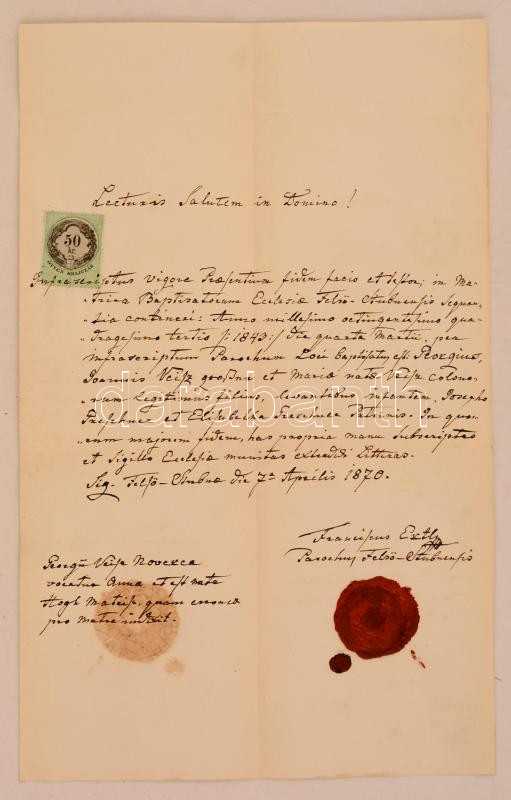 Lecturis Salutem in Domino!
50
kr.
ÖTVEN KRAJCZÁR
Infrascriptus vigore Praesentium fidem facio et testor; in Ma-
-trica Baptisatorum Ecclesiae Felsö-Stubnensis Sequen-
-tia contineri: Anno millesimo octingentesimo qua-
-dragesimo tertio /: 1843 :/ die quarta Martii, per
infrascriptum Parochum Loci baptisatus est Georgius,
Joannis Veisz et Mariae natae Veisz colono-
-rum legitimus filius, levantibus infantem Josepho
et Elisabetha Patrinis. In quo-
-rum majorem fidem, has propria manu subscriptas
et Sigillo Ecclesiae munitas extradedi Litteras.
Sig. Felsö-Stubnae die 7a Aprilis 1870.
Franciscus
Parochus Felsö-Stubnensis
Georgii Veisz Noverca
vocatur Anna et est nata
quam erronee
pro matre
darabanth